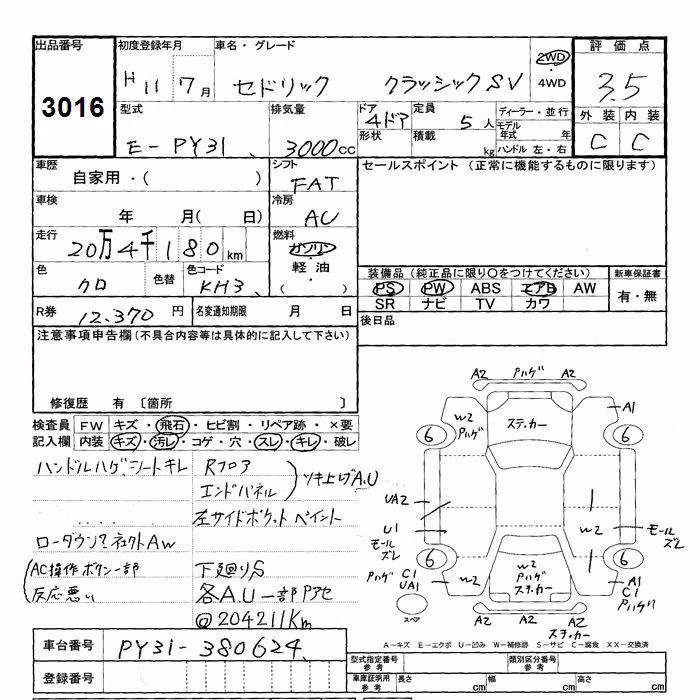 出品番号 初度登録年月 車名・グレード 評価点
3016 H 11 7月 セドリック クラッシックSV 2WD・4WD 3.5
型式 排気量 ドア 定員 ディーラー・並行 外装 内装
E-PY31 3000cc 4ドア 5人 モデル年式 年 C C
形状 積載 kg ハンドル 左・右
車歴 シフト セールスポイント (正常に機能するものに限ります)
自家用・( ) FAT
車検 冷房
年 月( 日) AC
走行 燃料
20万4千180km ガソリン・軽油・( )
色 色替 色コード 装備品 (純正品に限り○をつけてください) 新車保証書
クロ KH3 PS PW ABS エアB AW 有・無
SR ナビ TV カワ
R券 12,370円 名変通知期限 月 日 後日品
注意事項申告欄 (不具合内容等は具体的に記入して下さい)
修復歴 有 〔箇所 〕
検査員 FW キズ・飛石・ヒビ割・リペア跡・×要
記入欄 内装 キズ・汚レ・コゲ・穴・スレ・キレ・破レ
ハンドルハゲ、シートキレ Rフロア
エンドパネル ツキ上げA.U
左サイドポケット ペイント
ローダウン?社外AW
(AC操作ボタン一部 下廻りS
反応悪い 各A.U一部Pアセ
@204211Km
A2 Pハゲ A2
W2 Pハゲ ステッカー A1
6 6
UA2
U1 W2 モールズレ
モールズレ
6 6
Pハゲ C1 UA1 W2 W2 Pハゲ ステッカー A1 C1 Pハゲ
スペア A2 A2 A2
ステッカー
A-キズ E-エクボ U-凹み W-補修跡 S-サビ C-腐食 XX-交換済
車台番号 PY31-380624
型式指定番号 参考 類別区分番号 参考
登録番号 車庫証明用 参考 長さ cm 幅 cm 高さ cm